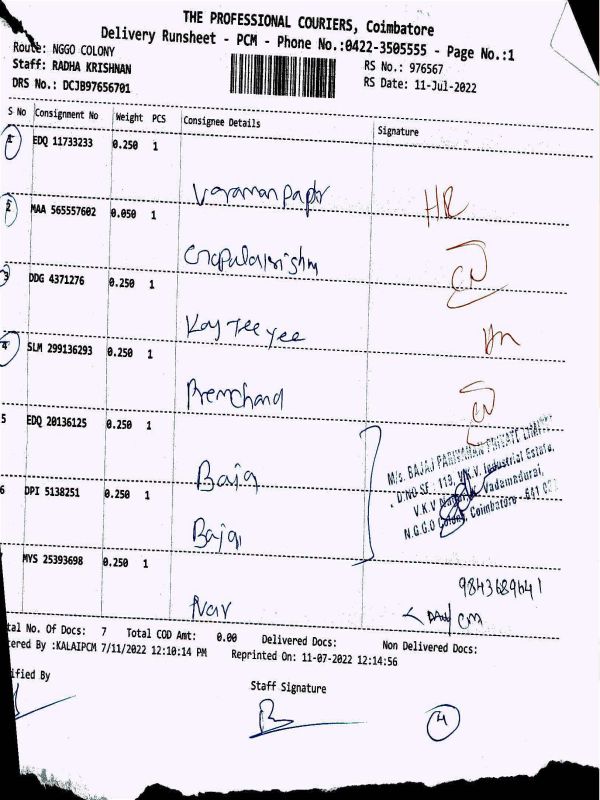 THE PROFESSIONAL COURIERS, Coimbatore
Delivery Runsheet - PCM - Phone No.:0422-3505555 - Page No.:1
Route: NGGO COLONY
RS No.: 976567
Staff: RADHA KRISHNAN
RS Date: 11-Jul-2022
DRS No.: DCJB97656701
S No Consignment No Weight PCS Consignee Details Signature
1 EDQ 11733233 0.250 1
HR
2 MAA 565557602 0.050 1
3 DDG 4371276 0.250 1
Kay Tee yee
4 SLM 299136293 0.250 1
Premchand
5 EDQ 20136125 0.250 1
M/s. BAJAJ PARIVAHAN PRIVATE LIMITED
D.NO SF. 119, V.K.V. Industrial Estate,
6 DPI 5138251 0.250 1
V.K.V Vadamadurai,
N.G.G.O Colony, Coimbatore - 641
MYS 25393698 0.250 1
9843689641
Nav
tal No. Of Docs: 7 Total COD Amt: 0.00 Delivered Docs: Non Delivered Docs:
tered By :KALAIPCM 7/11/2022 12:10:14 PM Reprinted On: 11-07-2022 12:14:56
ified By
Staff Signature
4